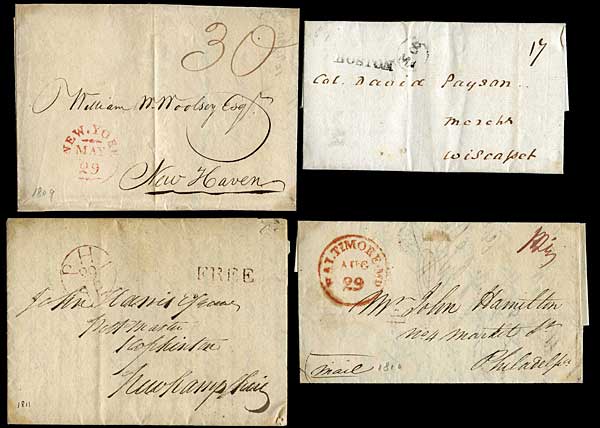 30
William W. Woolsey Esqr.
NEW-YORK
MAY
29
New Haven
1809
BOSTON
17
Col. David Payson
Mercht
Wiscasset
FREE
John Harris Esquire
Post Master
Hopkinton
New Hampshire
1811
BALTIMORE MD
AUG
29
Mr. John Hamilton
No 4 Market St
Philadelphia
Mail
1810